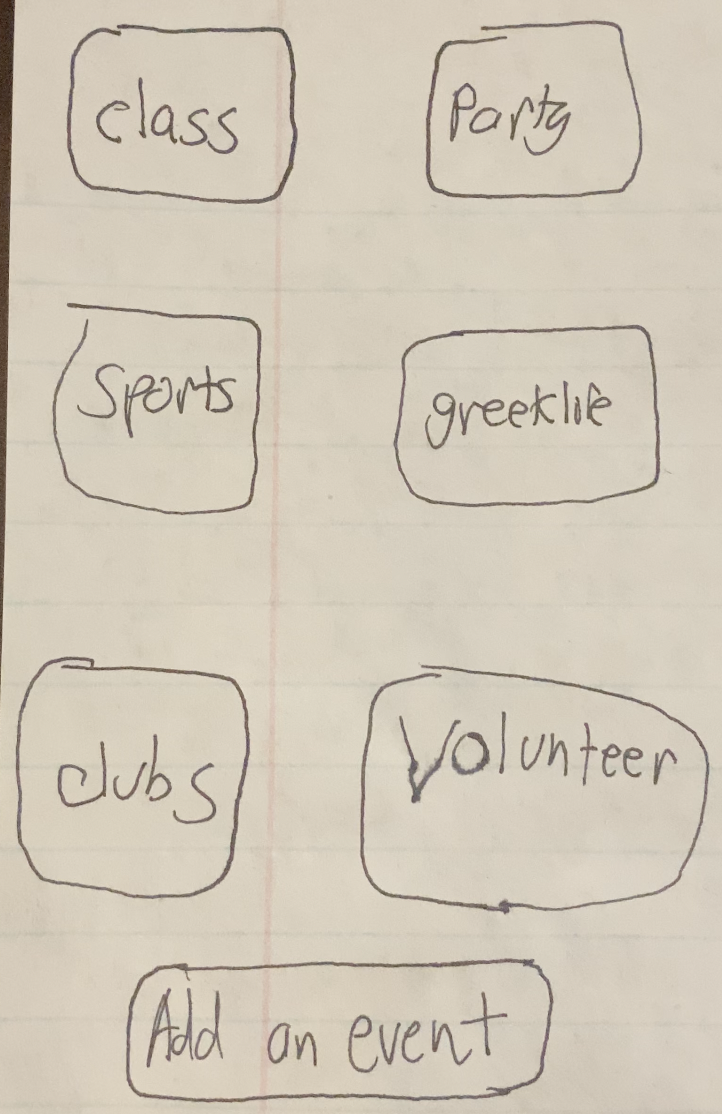 class
Party
Sports
greeklife
clubs
Volunteer
Add an event